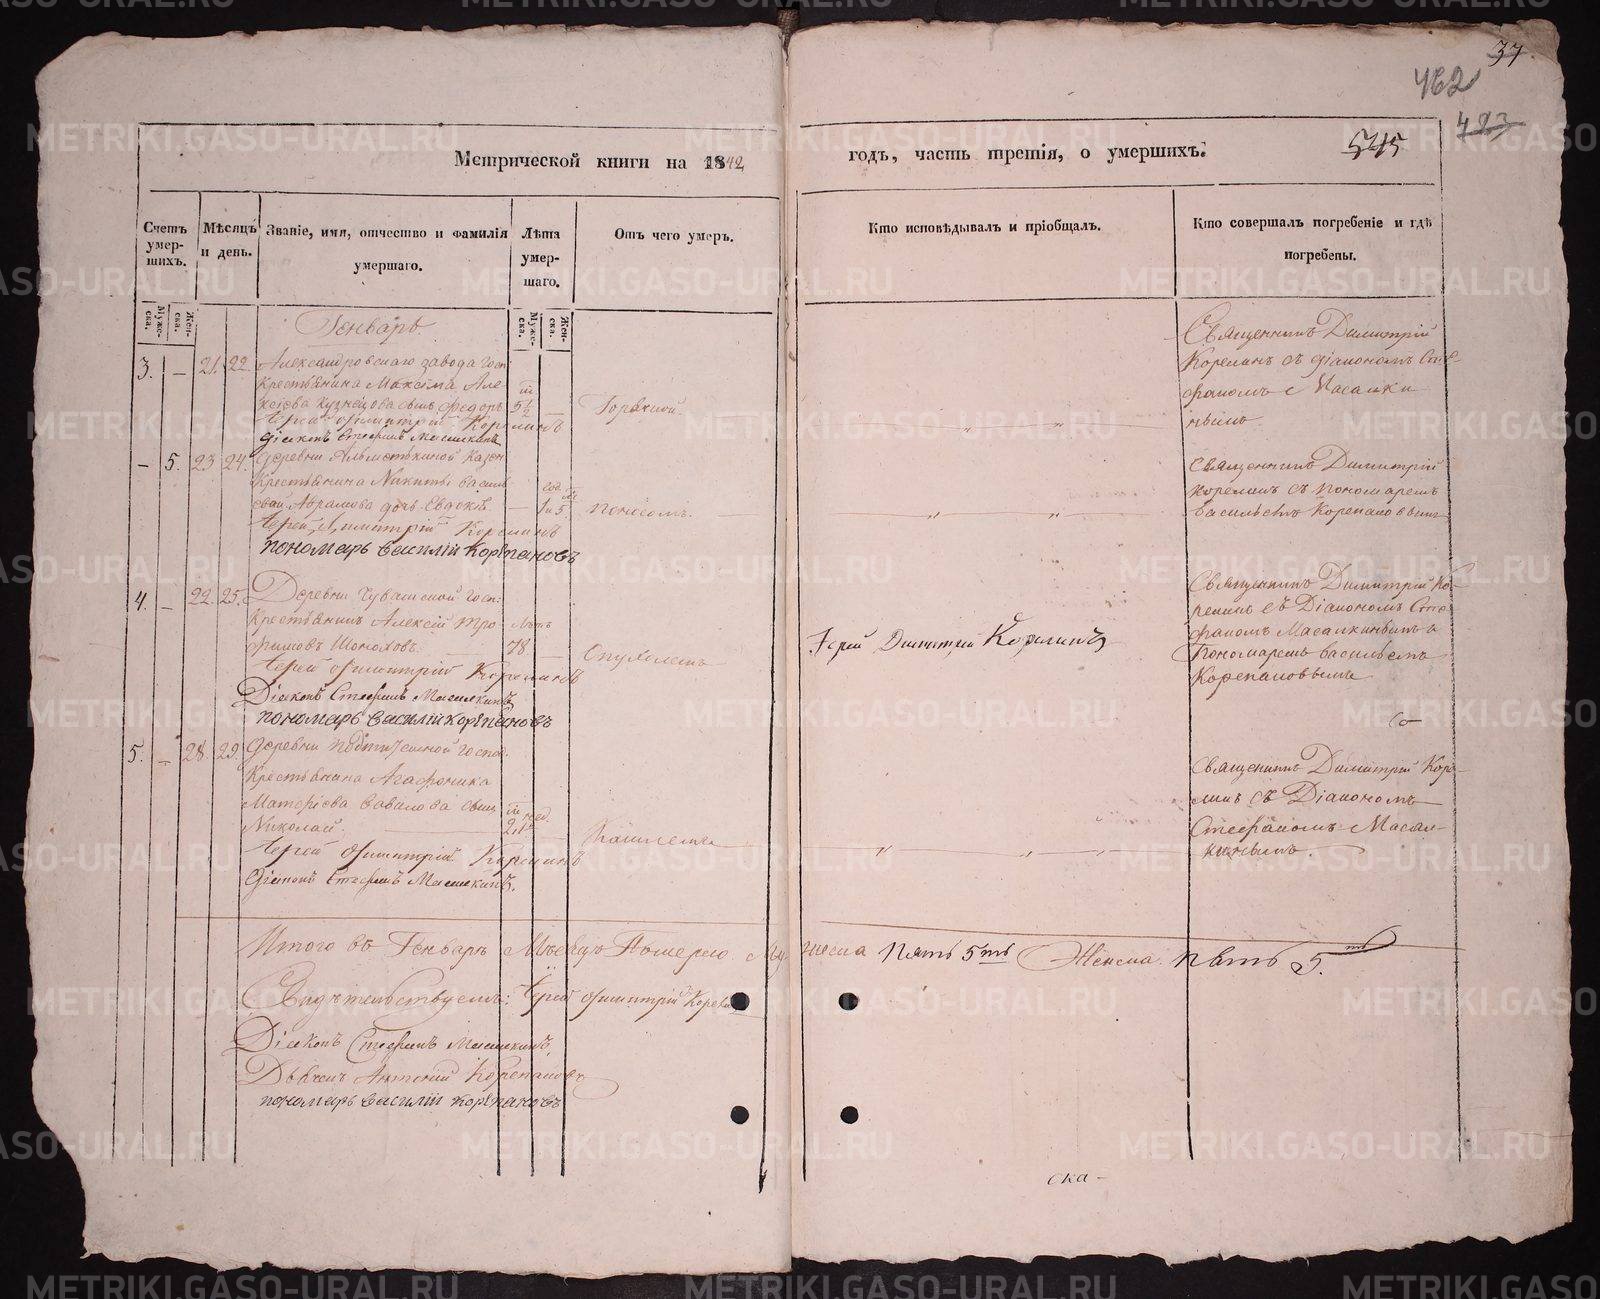 37
462
493
545
Метрической книги на 1842
годъ, часть третія, о умершихъ.
Счетъ умер-шихъ.
Мѣсяцъ и день.
Званіе, имя, отчество и фамилія умершаго.
Лѣта умер-шаго.
Отъ чего умеръ.
Кто исповѣдывалъ и пріобщалъ.
Кто совершалъ погребеніе и гдѣ погребены.
Муже-ска.
Жен-ска.
Муже-ска.
Жен-ска.
Генварь
3. — 21. 22.
Александровскаго завода Госп:
Крестьянина Максима Але-
ксѣева Кузнецова сынъ Федоръ
Іерей Димитрій Корелинъ
Діаконъ Стефанъ Масалкинъ
Горячкой
Священникъ Димитрій
Корелинъ съ діакономъ Сте-
фаномъ Масалки
нымъ
— 5. 23 24.
Крестьянина Никиты Василь
Абрамова дочь Евдокія
Іерей Димитрій Корелинъ
пономарь Василій Корѣпановъ
поносомъ.
Священникъ Димитрій
Корелинъ съ пономаремъ
Васильемъ Корепановымъ
4. — 22. 25.
Деревни Чувашской Госп:
Крестьянинъ Алексій Тро
фимовъ
лѣтъ
78
Іерей Димитрій Корелинъ
Діаконъ Стефанъ Масалкинъ
пономарь Василій Корѣпановъ
Іерей Димитрій Корелинъ
Священникъ Димитрій Ко-
релинъ съ Діакономъ Сте-
фаномъ Масалкинымъ и
Пономаремъ Васильемъ
Корепановымъ
5. — 28. 29.
Крестьянина Агафоника
Матфіева Вавилова сынъ
Николай.
Іерей Димитрій Корелинъ
Діаконъ Стефанъ Масалкинъ.
Священникъ Димитрій Коре-
линъ съ Діакономъ
Стефаномъ Масал-
кинымъ.
Итого въ Генварѣ Мѣсяцѣ Померло Мужеска пять 5ть Женска пять 5.
Свидѣтельствуемъ: Іерей Димитрій Корелинъ
Діаконъ Стефанъ Масалкинъ
Дьячекъ Антоній Корепановъ
пономарь Василій Корѣпановъ
ска-
METRIKI.GASO-URAL.RU